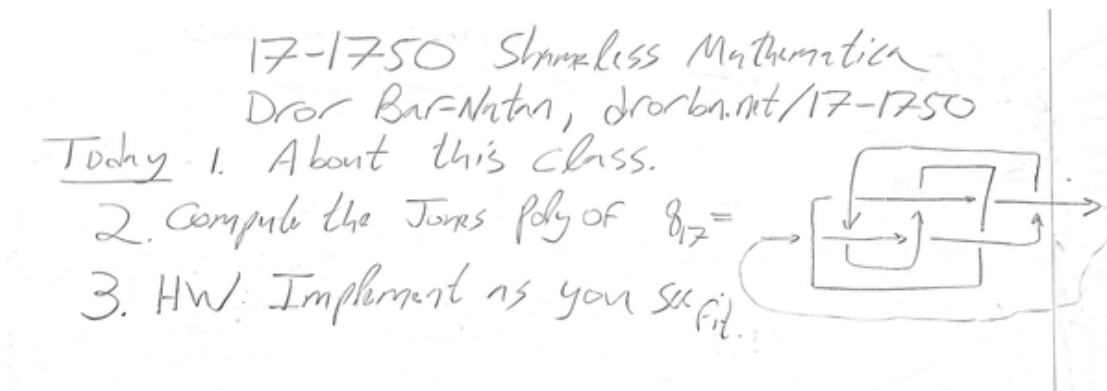 17-1750 Shameless Mathematica
Dror Bar-Natan, drorbn.net/17-1750
Today 1. About this class.
2. Compute the Jones Poly of 8₁₇=
3. HW: Implement as you see fit.